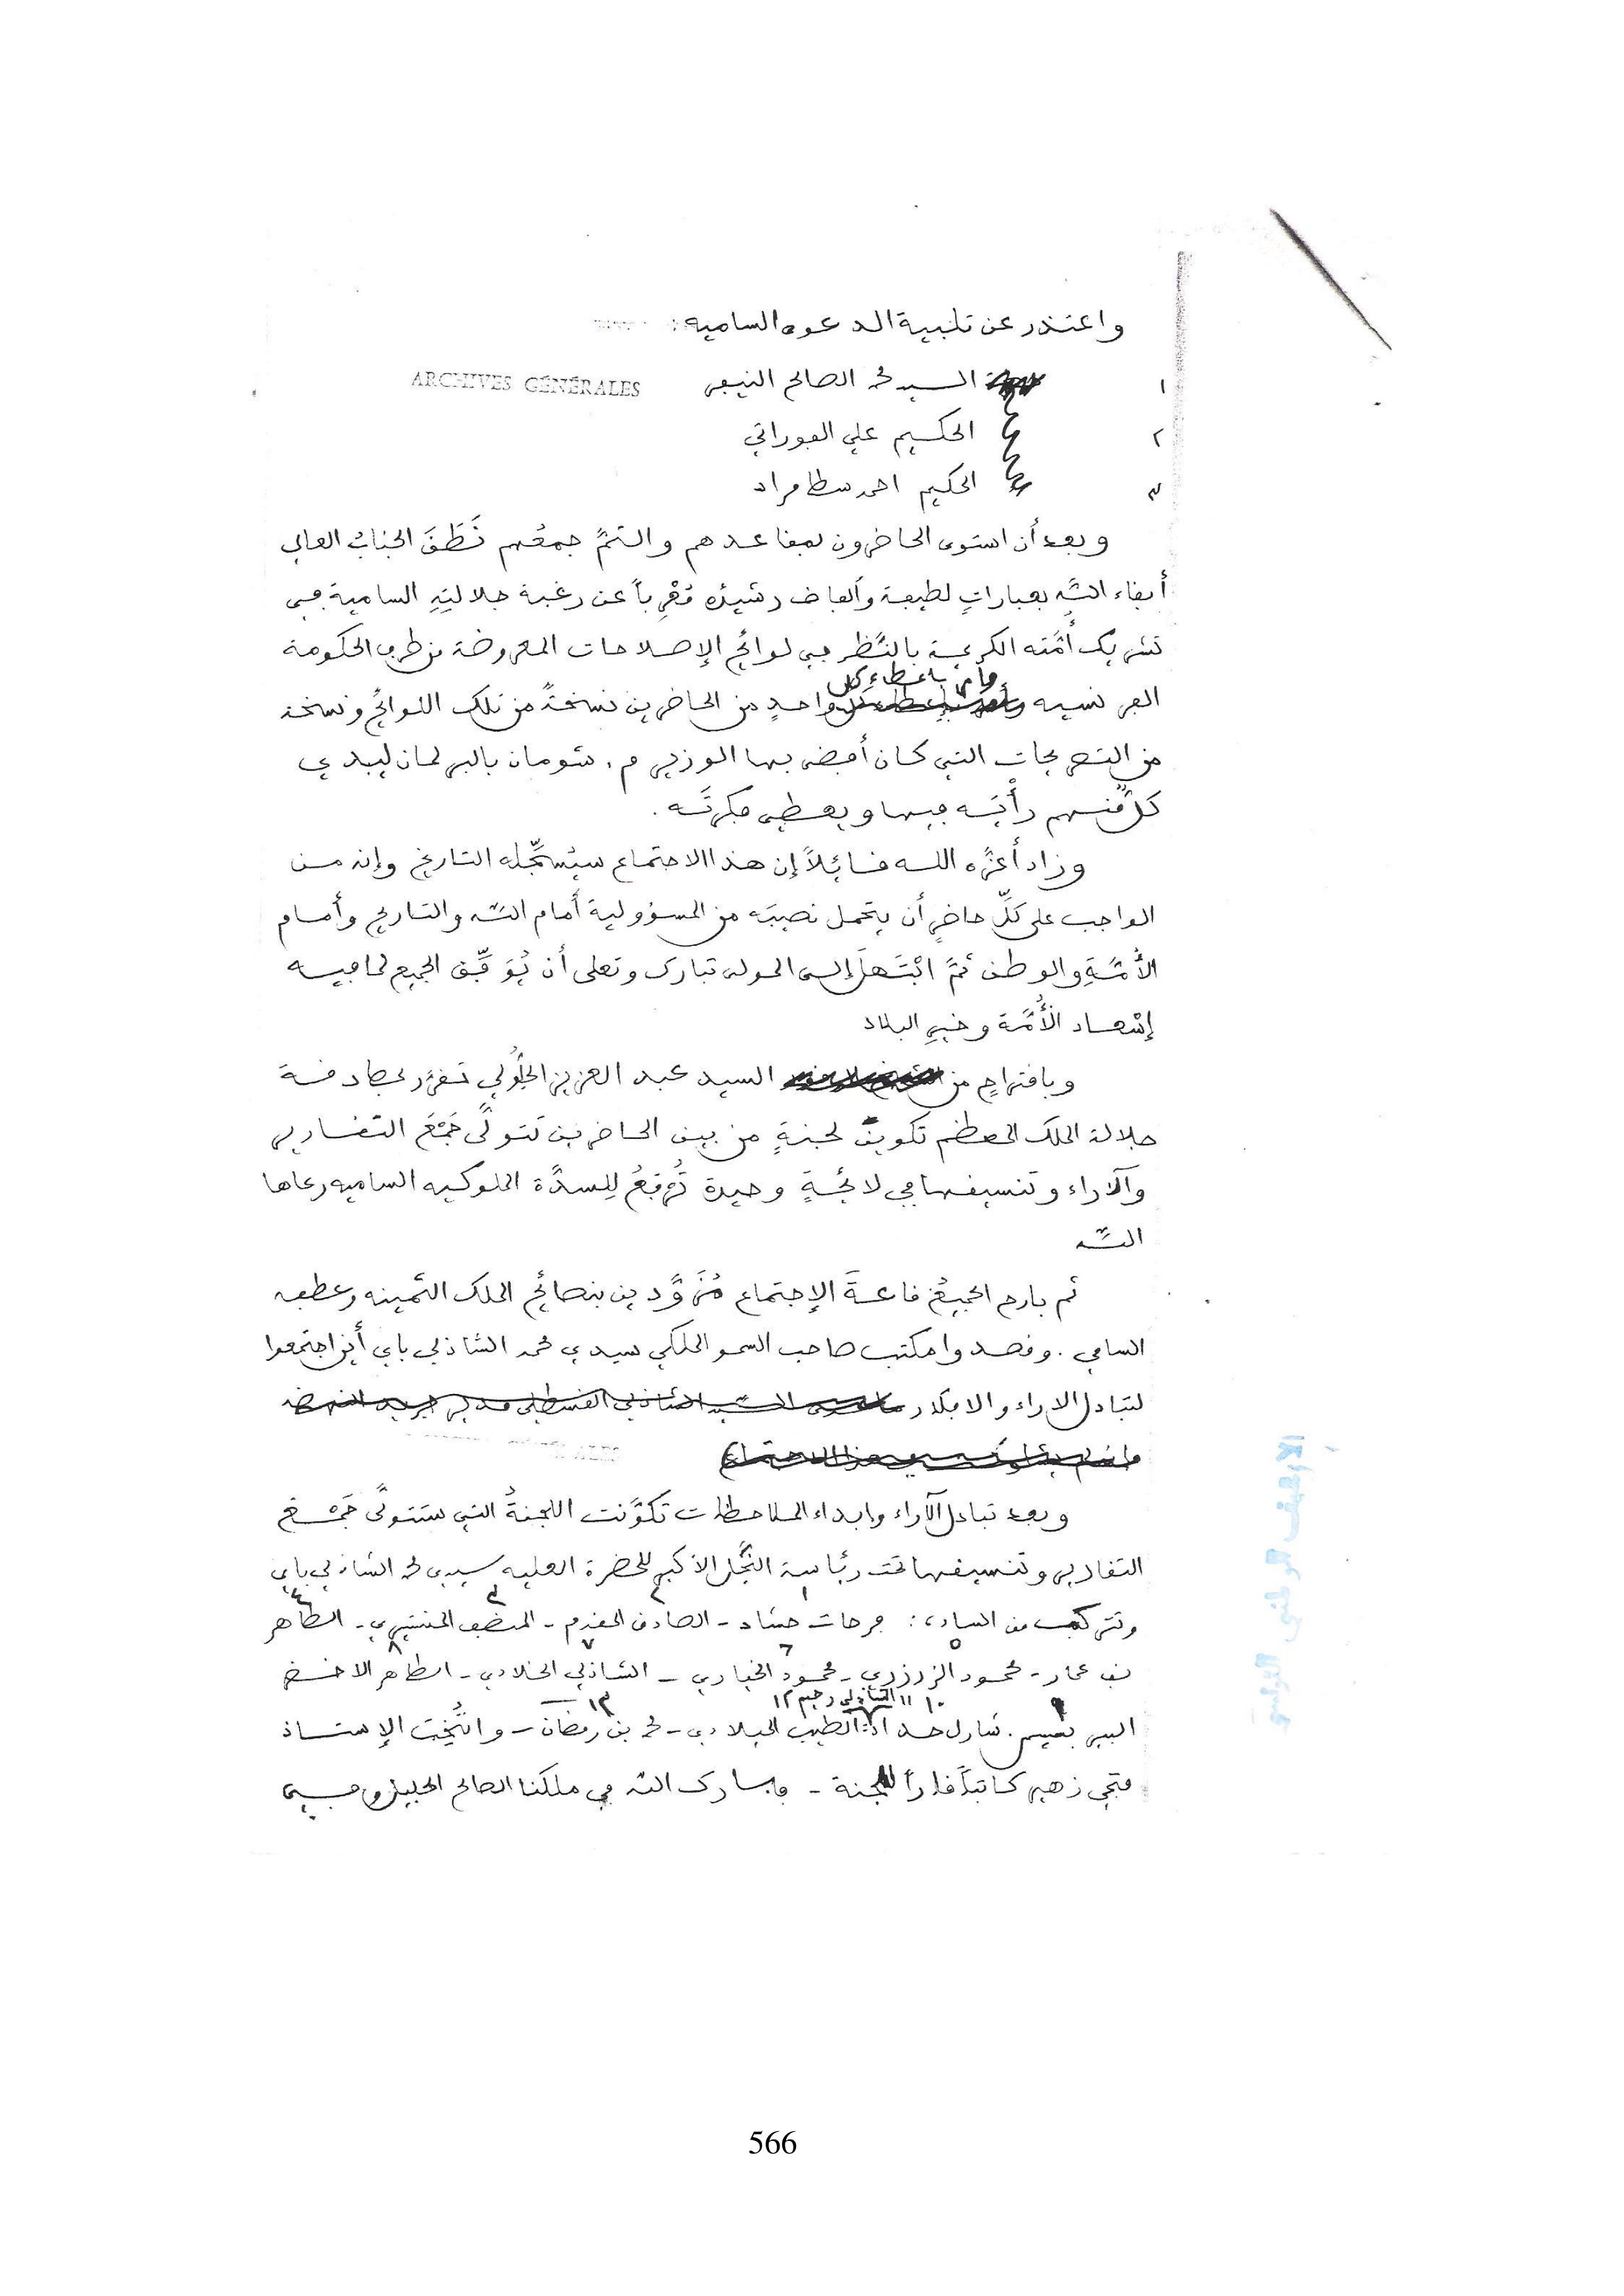 واعتذر عن تلبية الدعوه الساميه:
١ السيد محمد الصالح النيفر
ARCHIVES GÉNÉRALES
٢ الحكيم علي الفوراتي
٣ الحكيم احمد سطا مراد
وبعد أن استوى الحاضرون بمقاعدهم والتمَّ جمعُهم نَطَقَ الجنابُ العالي
أبقاه اللّه بعباراتٍ لطيفة وألفاظ رشيقه مُعْرِباً عن رغبة جلالتِهِ السامية في
تشريك أُمَّته الكريمة بالنَّظر في لوائح الإصلاحات المعروضة من طرف الحكومة
الفرنسيه وأمر باعطاء كل واحدٍ من الحاضرين نسخةً من تلك اللوائح ونسخة
من التصريحات التي كان أفضى بها الوزير م. شومان بالبرلمان ليبدي
كلٌّ منهم رأيَه فيها ويعطي فكرتَه.
وزاد أعزَّه الله قائلاً إن هذا الاجتماع سيُسجِّله التاريخ وإنه من
الواجب على كلِّ حاضرٍ أن يتحمل نصيبَه من المسؤولية أمام اللّه والتاريخ وأمام
الأُمَّةِ والوطن ثمَّ ابْتَهلَ إلى المولى تبارك وتعلى أن يُوَفِّق الجميع لما فيه
إسْعاد الأُمَّة وخيرِ البلاد
وباقتراحٍ من السيد عبد العزيز الجلُّولي تقرَّر بمصادقة
جلالة الملك المعظم تكوينُ لجنةٍ من بين الحاضرين تتولَّى جَمْعَ التقارير
والآراء وتنسيقها في لائحةٍ وحيدة تُرفَعُ لِلسدَّة الملوكيه الساميه رعاها
اللّه
ثم بارح الجميعُ قاعةَ الإجتماع مُزَوَّدين بنصائح الملك الثَّمينه وعطفه
السامي. وقصدوا مكتب صاحب السمو الملكي سيدي محمد الشاذلي باي أين اجتمعوا
لتبادل الاراء والافكار
ALES
وبعد تبادل الآراء وابداء الملاحظات تكوَّنت اللجنةُ التي ستتولَّى جَمْعَ
التقارير وتنسيقها تحت رئاسة النَّجْل الأكبر للحضرة العليه سيدي محمد الشاذلي باي
وتتركب من السادة: ١ فرحات حشاد - ٢ الصادق المقدم - ٣ المنصف المنستيري - ٤ الطاهر
بن عمار - ٥ محمود الزرزري - ٦ محمود الخياري - ٧ الشاذلي الخلادي - ٨ الطاهر الاخضر
٩ البير بسيس. ١٠ شارل حداد ١١ الشاذلي رحيم ١٢ الطيب الميلادي - ١٣ محمد بن رمضان - وانتُخِبَ الإستاذ
فتحي زهير كاتباً قاراً للجنة - فبارك اللّه في ملكنا الصالح الجليل وفي
الارشيف الوطني التونسي
566